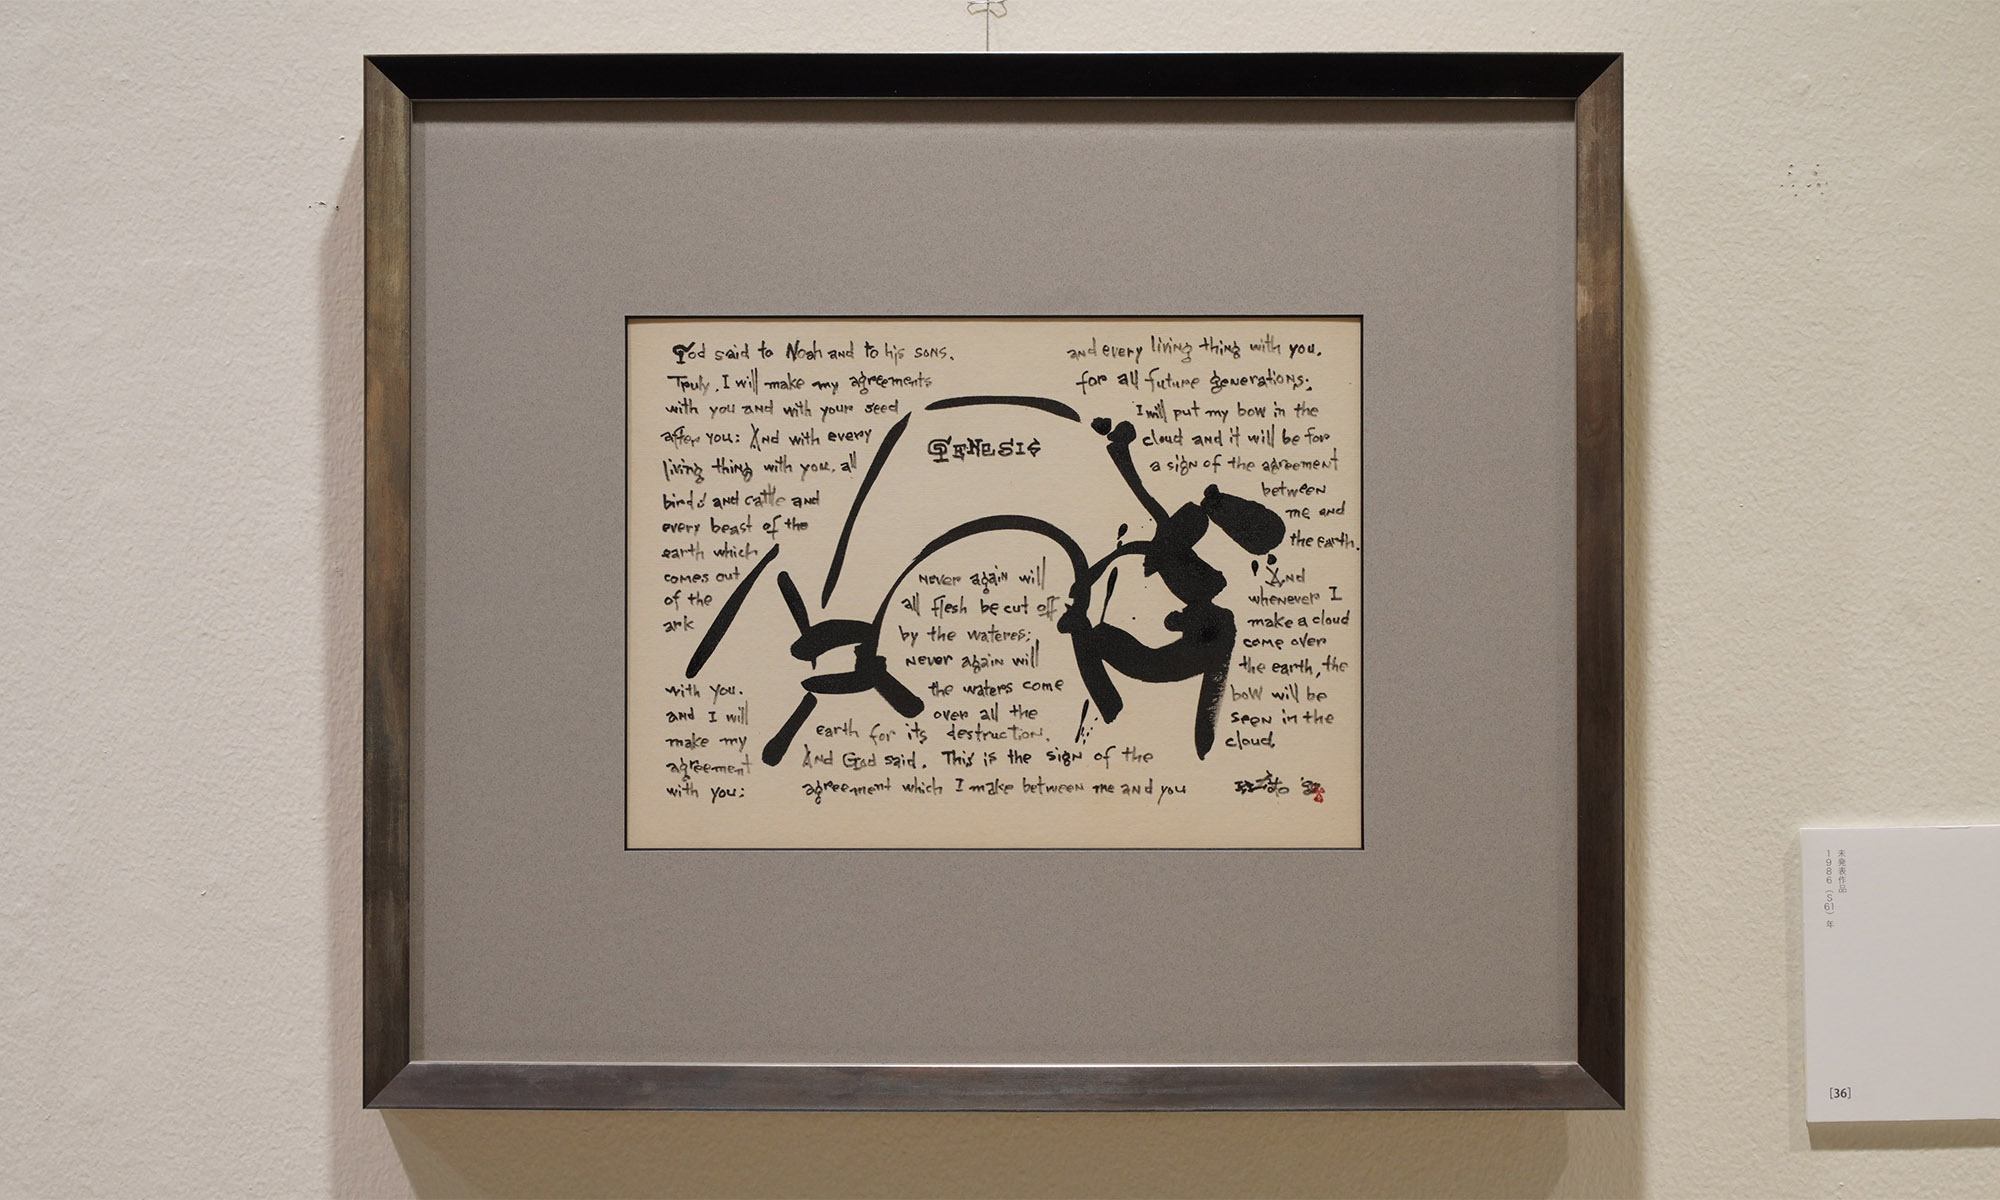 God said to Noah and to his sons.
Truly, I will make my agreements
with you and with your seed
after you: And with every
living thing with you, all
birds and cattle and
every beast of the
earth which
comes out
of the
ark
with you.
and I will
make my
agreement
with you:
GENESIS
never again will
all flesh be cut off
by the wateres;
never again will
the waters come
over all the
earth for its destruction.
And God said. This is the sign of the
agreement which I make between me and you
and every living thing with you.
for all future generations:
I will put my bow in the
cloud and it will be for
a sign of the agreement
between
me and
the earth.
And
whenever I
make a cloud
come over
the earth, the
bow will be
seen in the
cloud.
未発表作品
1986（S61）年
[36]